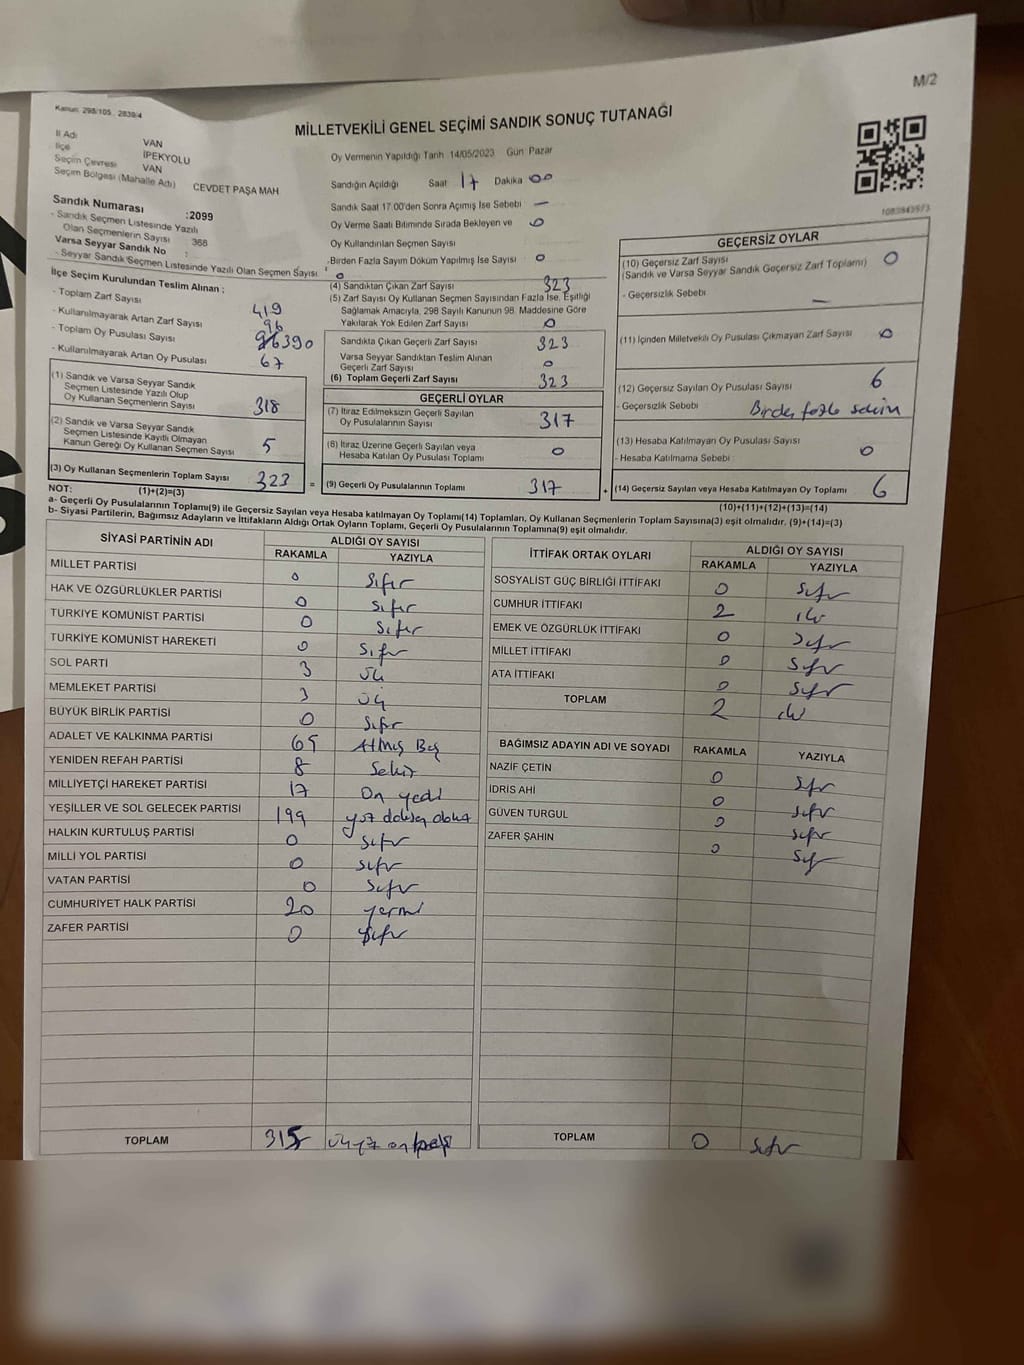 M/2
Kanun: 298/105, 2839/4
MİLLETVEKİLİ GENEL SEÇİMİ SANDIK SONUÇ TUTANAĞI
İl Adı VAN
İlçe İPEKYOLU
Seçim Çevresi VAN
Seçim Bölgesi (Mahalle Adı) CEVDET PAŞA MAH
Sandık Numarası :2099
- Sandık Seçmen Listesinde Yazılı
Olan Seçmenlerin Sayısı : 388
Varsa Seyyar Sandık No :
- Seyyar Sandık Seçmen Listesinde Yazılı Olan Seçmen Sayısı :
Oy Vermenin Yapıldığı Tarih 14/05/2023 Gün Pazar
Sandığın Açıldığı Saat 17 Dakika 00
Sandık Saat 17.00'den Sonra Açımış İse Sebebi —
Oy Verme Saati Bitiminde Sırada Bekleyen ve 0
Oy Kullandırılan Seçmen Sayısı
-Birden Fazla Sayım Döküm Yapılmış İse Sayısı 0
0
1083843973
İlçe Seçim Kurulundan Teslim Alınan :
- Toplam Zarf Sayısı 419
- Kullanılmayarak Artan Zarf Sayısı 96
- Toplam Oy Pusulası Sayısı 390
- Kullanılmayarak Artan Oy Pusulası 67
(1) Sandık ve Varsa Seyyar Sandık
Seçmen Listesinde Yazılı Olup
Oy Kullanan Seçmenlerin Sayısı 318
(2) Sandık ve Varsa Seyyar Sandık
Seçmen Listesinde Kayıtlı Olmayan
Kanun Gereği Oy Kullanan Seçmen Sayısı 5
(3) Oy Kullanan Seçmenlerin Toplam Sayısı 323 =
(1)+(2)=(3)
(4) Sandıktan Çıkan Zarf Sayısı 323
(5) Zarf Sayısı Oy Kullanan Seçmen Sayısından Fazla İse, Eşitliği
Sağlamak Amacıyla, 298 Sayılı Kanunun 98. Maddesine Göre
Yakılarak Yok Edilen Zarf Sayısı 0
Sandıkta Çıkan Geçerli Zarf Sayısı 323
Varsa Seyyar Sandıktan Teslim Alınan
Geçerli Zarf Sayısı 0
(6) Toplam Geçerli Zarf Sayısı 323
GEÇERLİ OYLAR
(7) İtiraz Edilmeksizin Geçerli Sayılan
Oy Pusulalarının Sayısı 317
(8) İtiraz Üzerine Geçerli Sayılan veya
Hesaba Katılan Oy Pusulası Toplamı 0
(9) Geçerli Oy Pusulalarının Toplamı 317 +
GEÇERSİZ OYLAR
(10) Geçersiz Zarf Sayısı 0
(Sandık ve Varsa Seyyar Sandık Geçersiz Zarf Toplamı)
- Geçersizlik Sebebi —
(11) İçinden Milletvekili Oy Pusulası Çıkmayan Zarf Sayısı 0
(12) Geçersiz Sayılan Oy Pusulası Sayısı 6
- Geçersizlik Sebebi Birden fazla seçim
(13) Hesaba Katılmayan Oy Pusulası Sayısı 0
- Hesaba Katılmama Sebebi
(14) Geçersiz Sayılan veya Hesaba Katılmayan Oy Toplamı 6
(10)+(11)+(12)+(13)=(14)
NOT:
a- Geçerli Oy Pusulalarının Toplamı(9) ile Geçersiz Sayılan veya Hesaba katılmayan Oy Toplamı(14) Toplamları, Oy Kullanan Seçmenlerin Toplam Sayısına(3) eşit olmalıdır. (9)+(14)=(3)
b- Siyasi Partilerin, Bağımsız Adayların ve İttifakların Aldığı Ortak Oyların Toplamı, Geçerli Oy Pusulalarının Toplamına(9) eşit olmalıdır.
SİYASİ PARTİNİN ADI ALDIĞI OY SAYISI
RAKAMLA YAZIYLA
MİLLET PARTİSİ 0 Sıfır
HAK VE ÖZGÜRLÜKLER PARTİSİ 0 Sıfır
TÜRKİYE KOMÜNİST PARTİSİ 0 Sıfır
TÜRKİYE KOMÜNİST HAREKETİ 0 Sıfır
SOL PARTİ 3 üç
MEMLEKET PARTİSİ 3 üç
BÜYÜK BİRLİK PARTİSİ 0 Sıfır
ADALET VE KALKINMA PARTİSİ 65 Atmış Beş
YENİDEN REFAH PARTİSİ 8 Sekiz
MİLLİYETÇİ HAREKET PARTİSİ 17 On yedi
YEŞİLLER VE SOL GELECEK PARTİSİ 199 yüz doksan dokuz
HALKIN KURTULUŞ PARTİSİ 0 sıfır
MİLLİ YOL PARTİSİ 0 sıfır
VATAN PARTİSİ 0 sıfır
CUMHURİYET HALK PARTİSİ 20 yermi
ZAFER PARTİSİ 0 sıfır
TOPLAM 315 üçyüz onbeş
İTTİFAK ORTAK OYLARI ALDIĞI OY SAYISI
RAKAMLA YAZIYLA
SOSYALİST GÜÇ BİRLİĞİ İTTİFAKI 0 sıfır
CUMHUR İTTİFAKI 2 iki
EMEK VE ÖZGÜRLÜK İTTİFAKI 0 sıfır
MİLLET İTTİFAKI 0 sıfır
ATA İTTİFAKI 0 sıfır
TOPLAM 2 iki
BAĞIMSIZ ADAYIN ADI VE SOYADI RAKAMLA YAZIYLA
NAZİF ÇETİN 0 sıfır
İDRİS AHİ 0 sıfır
GÜVEN TURGUL 0 sıfır
ZAFER ŞAHİN 0 sıfır
TOPLAM 0 sıfır